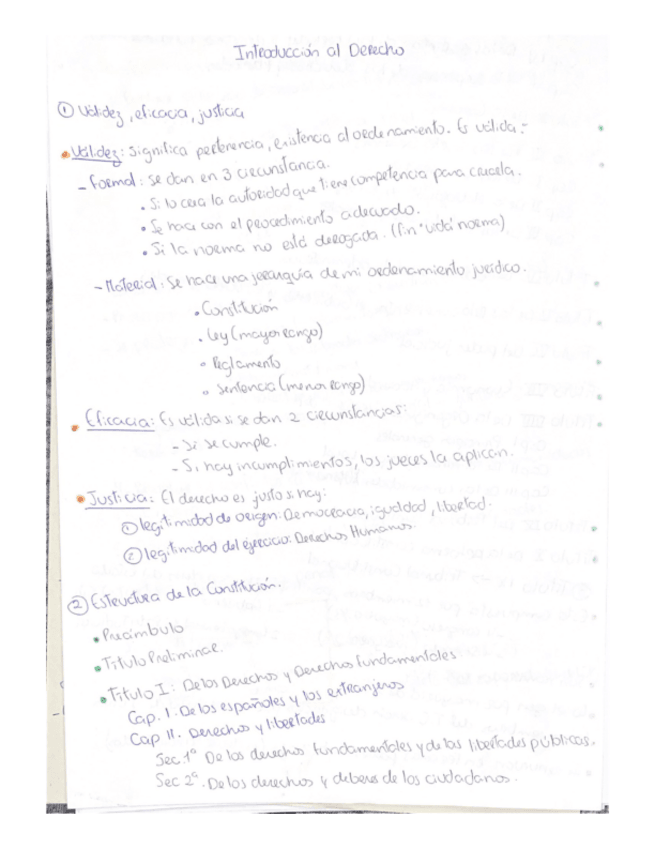 Introducción al Derecho
① Validez, eficacia, justicia
• Validez: Significa pertenencia, existencia al ordenamiento. Es válida:-
- Formal: se dan en 3 circunstancia.
• Si lo crea la autoridad que tiene competencia para crearla.
• Se hace con el procedimiento adecuado.
• Si la norma no está derogada. (fin "vida" norma)
- Material: Se hace una jerarquía de mi ordenamiento jurídico.
• Constitución
• Ley (mayor rango)
• Reglamento
• Sentencia (menor rango)
• Eficacia: Es válida si se dan 2 circunstancias:
- Si se cumple.
- Si hay incumplimientos, los jueces la aplican.
• Justicia: El derecho es justo si hay:
① legitimidad de origen: Democracia, igualdad, libertad.
② legitimidad del ejercicio: Derechos Humanos
② Estructura de la Constitución.
• Preámbulo
• Título Preliminar.
• Título I: De los Derechos y Derechos fundamentales
Cap. I. De los españoles y los extranjeros
Cap II. Derechos y libertades
Sec. 1ª De los derechos fundamentales y de las libertades públicas.
Sec 2ª. De los derechos y deberes de los ciudadanos.